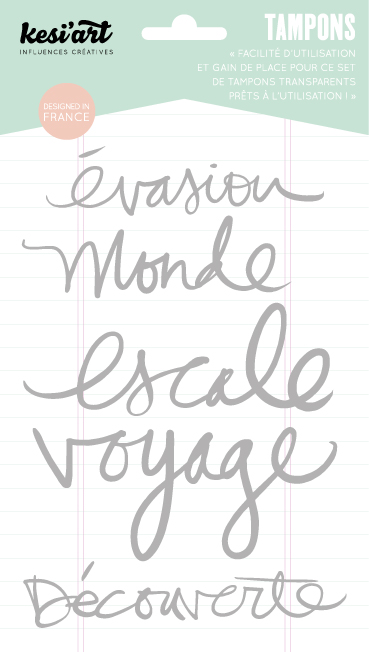 kesi'art
INFLUENCES CRÉATIVES
TAMPONS
« FACILITÉ D'UTILISATION
ET GAIN DE PLACE POUR CE SET
DE TAMPONS TRANSPARENTS
PRÊTS À L'UTILISATION ! »
DESIGNED IN
FRANCE
évasion
Monde
escale
voyage
Découverte